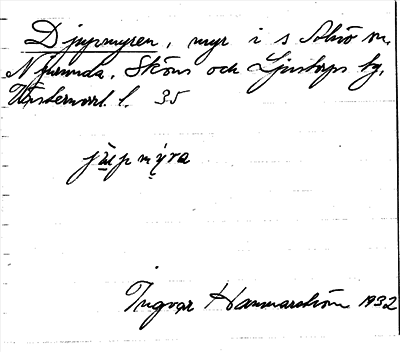 Djupmyren, myr i s Selånger
Njurunda, Sköns och Ljustorps tg,
Västernorrl. l. 35
jʉpmyra
Ingvar Hammarström 1932